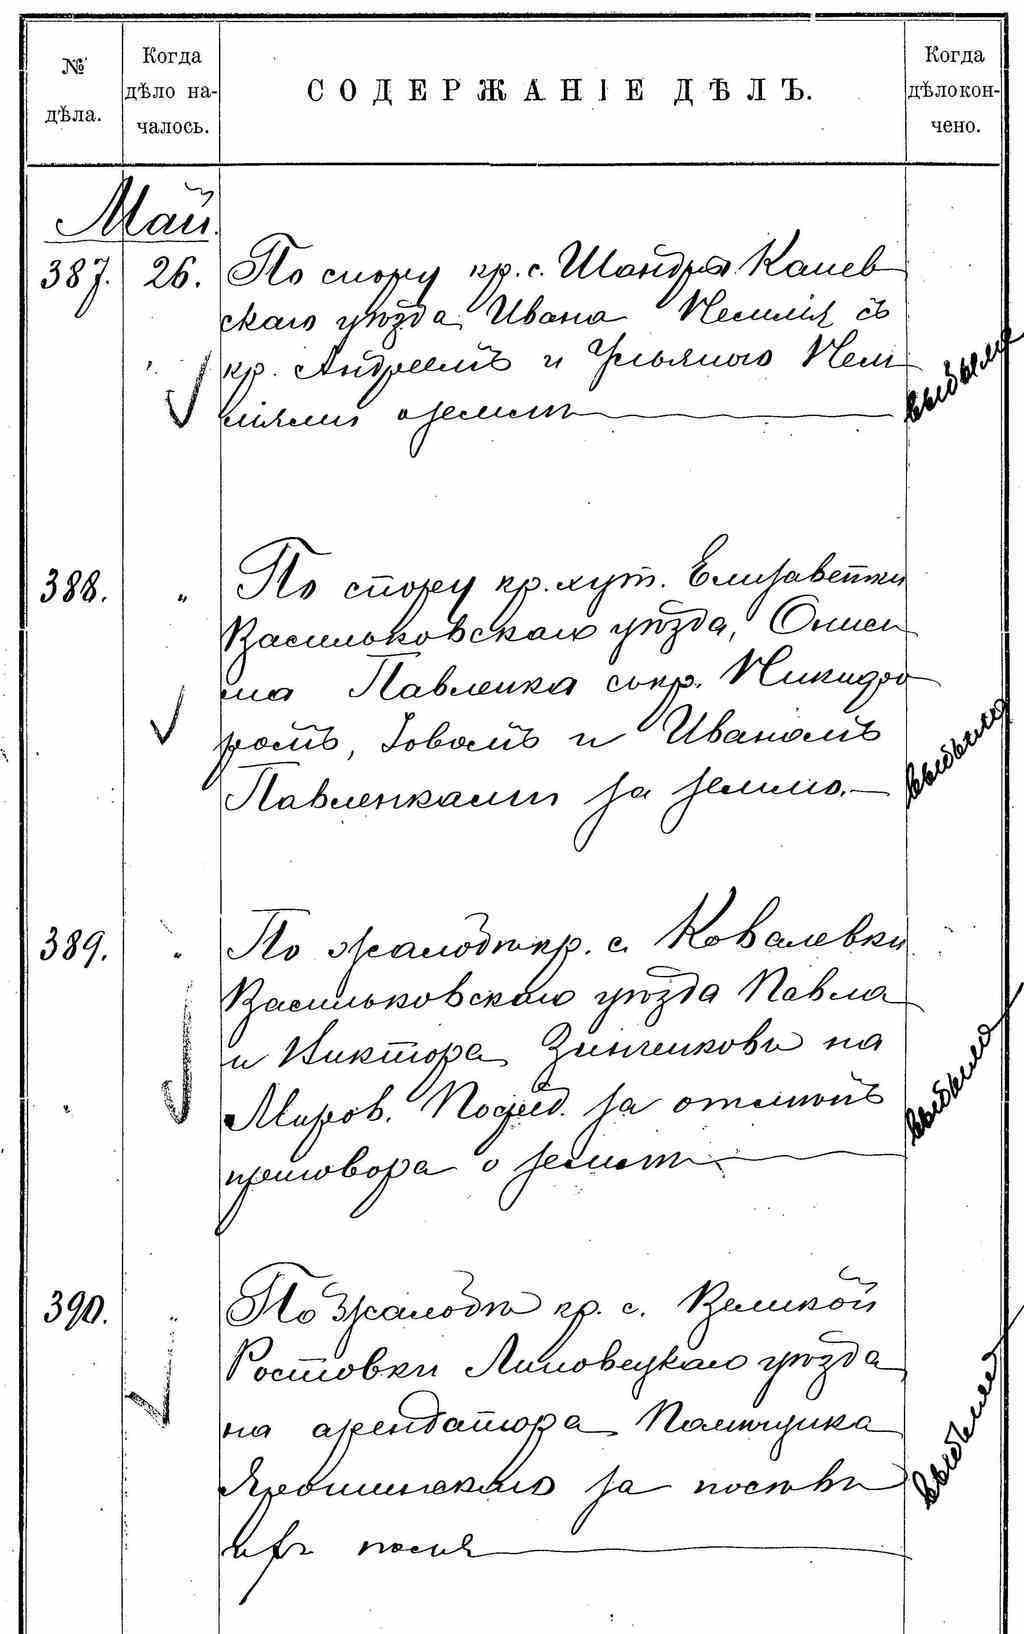 № дѣла.
Когда дѣло на-
чалось.
СОДЕРЖАНІЕ ДѢЛЪ.
Когда дѣло кон-
чено.
Май.
387. 26. По спору кр. с. Шандра Канев
скаго уѣзда, Ивана съ
кр. Андреемъ и Ульяною
о землѣ
выбыло
388. " По спору кр. хут. Елизаветки
Васильковскаго уѣзда, Ониси
ма Павленка съ кр. Никифо
ромъ, Іовомъ и Иваномъ
Павленками за землю.
выбыло
389. " По жалобѣ кр. с. Ковалевки
Васильковскаго уѣзда Павла
и Виктора Зинченковы на
Миров. Посред. за отмѣной
приговора о землѣ.
выбыло
390. " По жалобѣ кр. с. Великой
Ростовки Липовецкаго уѣзда
на арендатора Помѣщика
Ярошинскаго за посѣвы
ихъ поля
выбыло